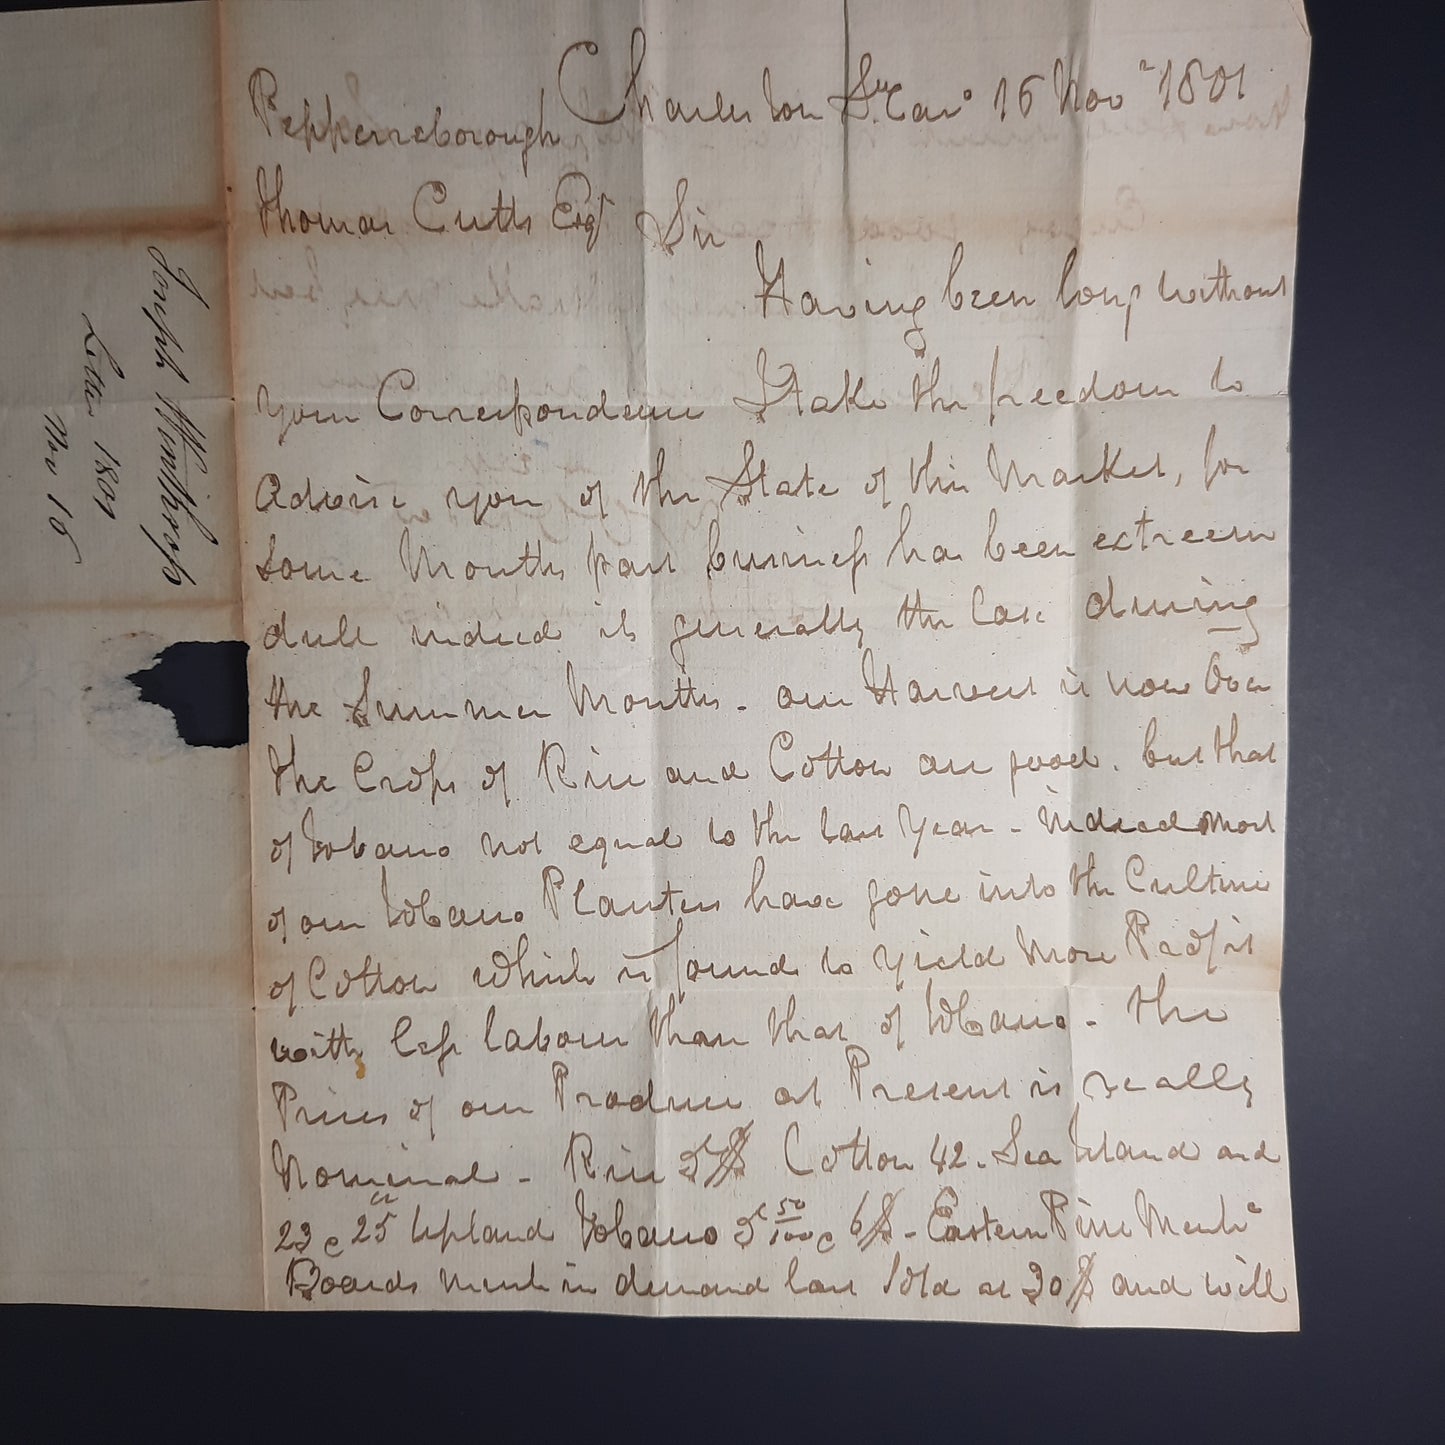 Charleston So. Caro 16 Novr 1801
Pepperreborough
Thomas Cutts Esqr Sir
Having been long without
your Correspondence I take the freedom to
advise you of the State of this Market, for
some Months past business has been extreem
dull indeed it is generally the Case during
the Summer Months - our Harvest is now Over
the Crops of Rice and Cotton are good. but that
of Tobacco not equal to the last Year - indeed Most
of our Tobacco Planters have gone into the Culture
of Cotton which is found to yield More Profit
with less labour than that of Tobacco - the
Prices of our Produce at Present is really
Nominal - Rice Cotton 42. Sea Island and
23 @ 25 Upland Tobacco 50/100 @ 6$ - Eastern Pine Merche
Boards Much in demand last Sold at 30$ and will
Joseph Winthrop
Letter 1801
Nov 16